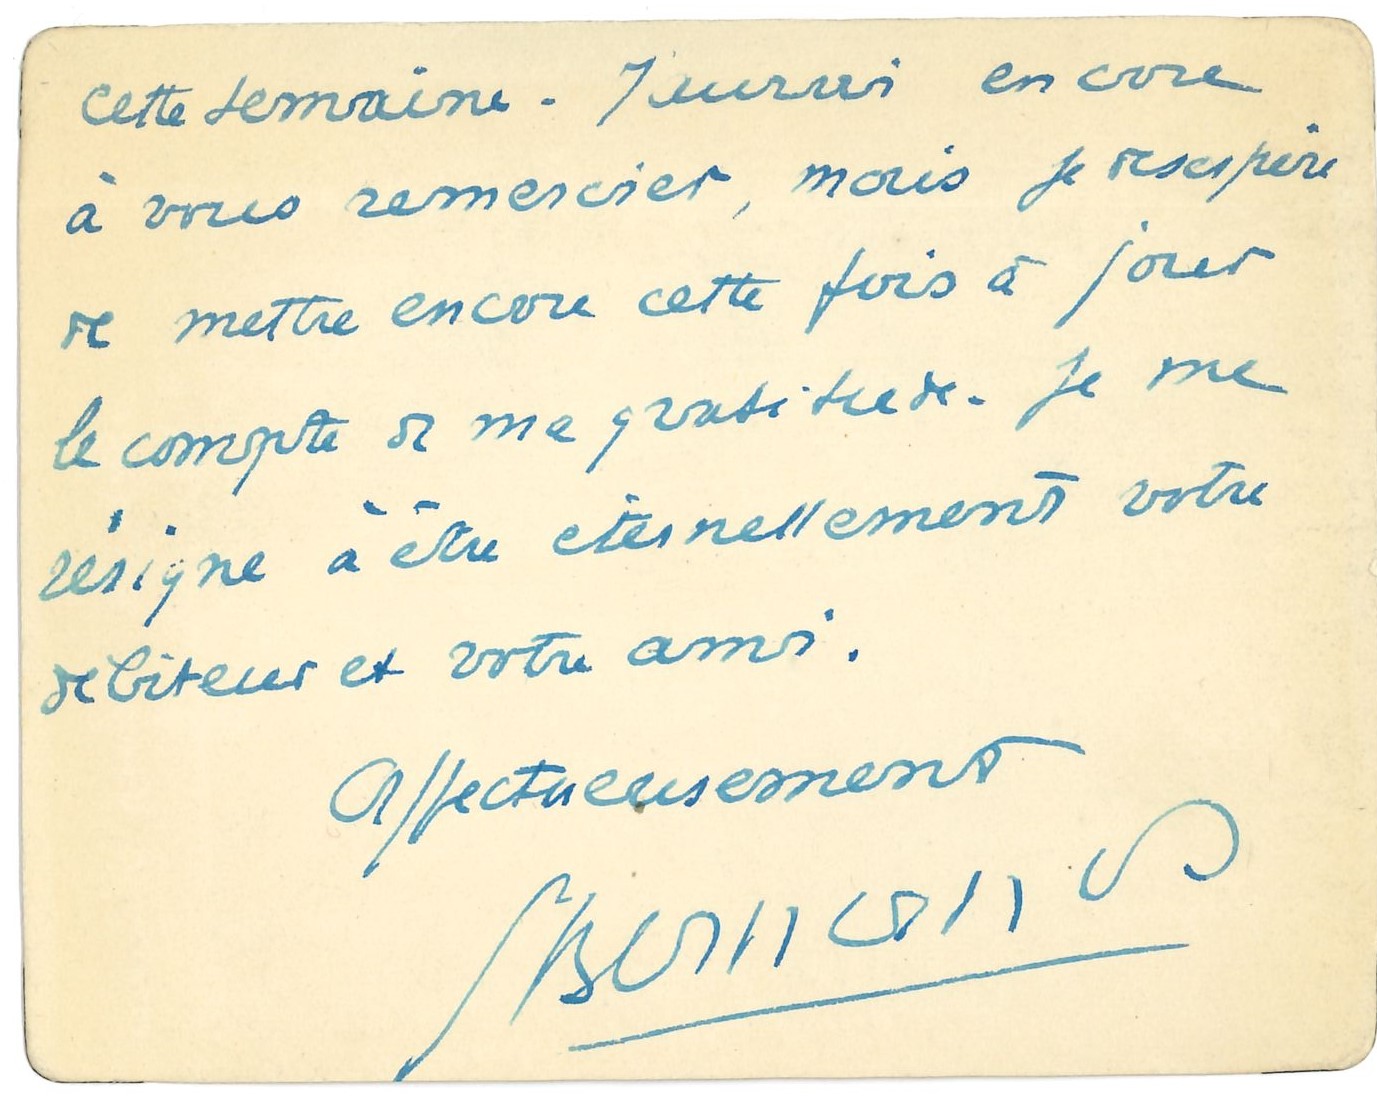 cette semaine. J'aurai encore
à vous remercier, mais je desespère
de mettre encore cette fois à jour
le compte de ma gratitude. Je me
résigne à être éternellement votre
débiteur et votre ami.
Affectueusement
GBernanos